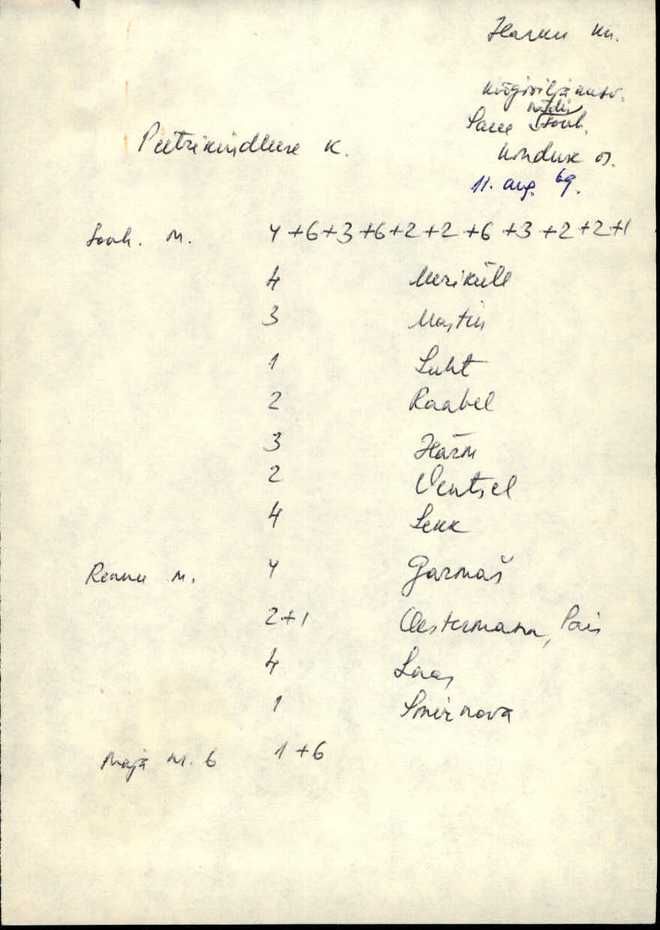 Harku kn.
Köögiviljakasv.
näidis
Saue sovh.
11. aug. 69.
Peetrimõisa k.
Sovh. m. 4+6+3+6+2+2+6+3+2+2+1
4 Meriküll
3 Mastin
1 Luht
2 Raabel
3 Härm
2 Ventsel
4 Lekk
m. 4 Garmaš
2+1 Oestermann, Pais
4 Laas
1 Smirnova
Maja m. 6 1+6